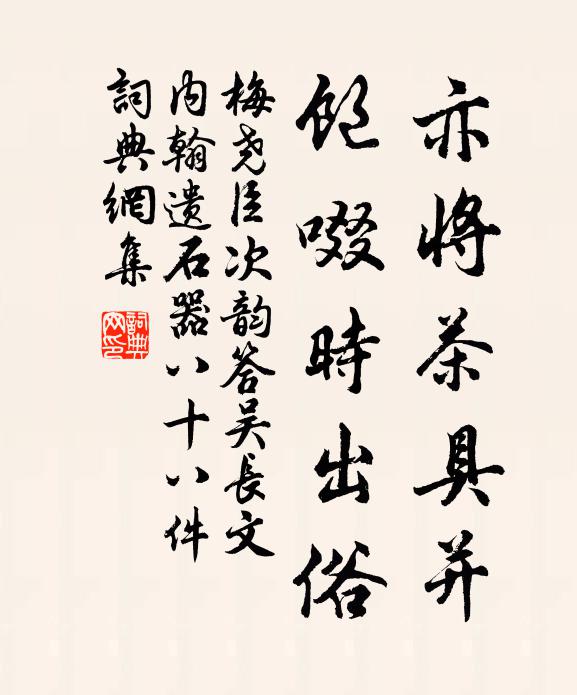 亦將茶具并
飽啜時出俗
梅尧臣次韵答吴長文
内翰遗石器八十八件
詞典網集
詞典网印